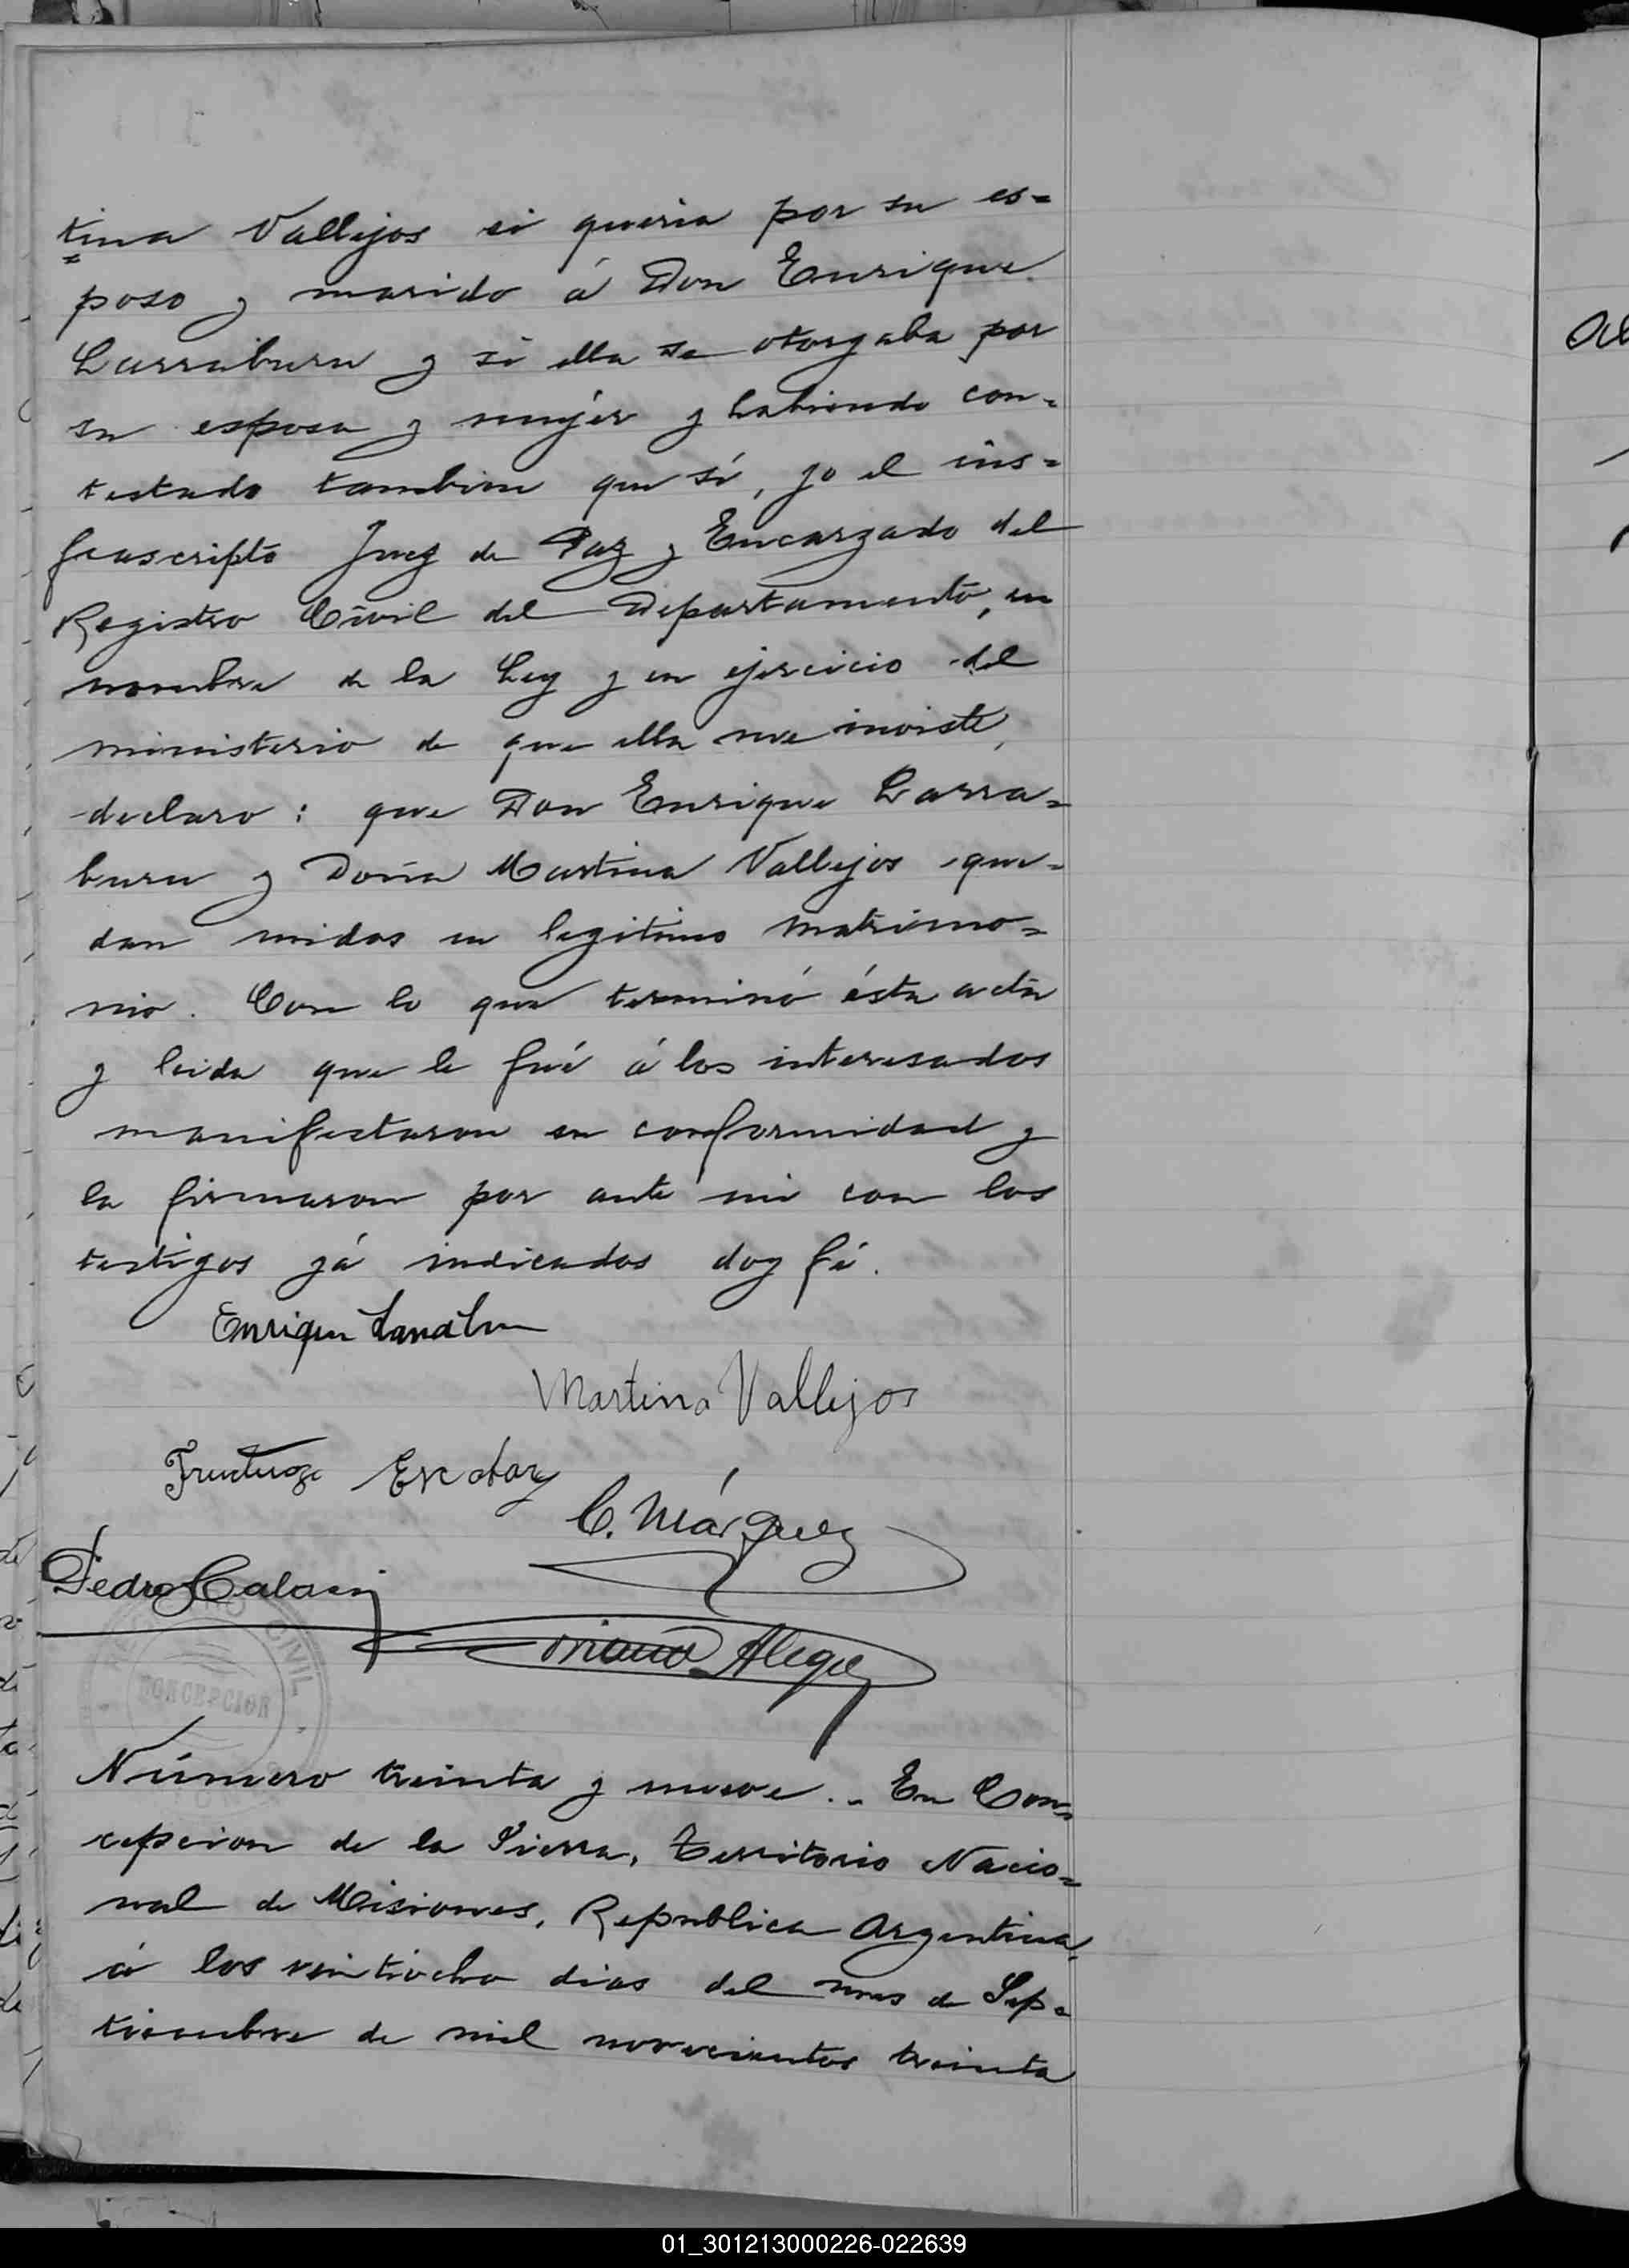 tina Vallejos si queria por su es=
poso y marido á Don Enrique
Larraburu y si ella se otorgaba por
su esposa y mujér y habiendo con=
testado tambien que sí, yo el ins=
frascripto Juez de Paz y Encargado del
Registro Civil del Departamento, en
nombre de la Ley y en ejercicio del
ministerio de que ella me inviste,
declaro: que Don Enrique Larra=
buru y Doña Martina Vallejos que=
dan unidos en legitimo matrimo=
nio. Con lo que terminó ésta acta
y leida que le fué á los interesados
manifestaron su conformidad y
la firmaron por ante mi con los
testigos yá indicados doy fé.
Enrique
Martina Vallejos
Fructuoso Escobar
C. Márquez
Pedro
Alegre
REGISTRO CIVIL
CONCEPCION
Número treinta y nueve.. En Con=
cepcion de la Sierra, Territorio Nacio=
nal de Misiones, Republica Argentina,
á los veintiocho dias del mes de Sep=
tiembre de mil novecientos treinta
01_301213000226-022639